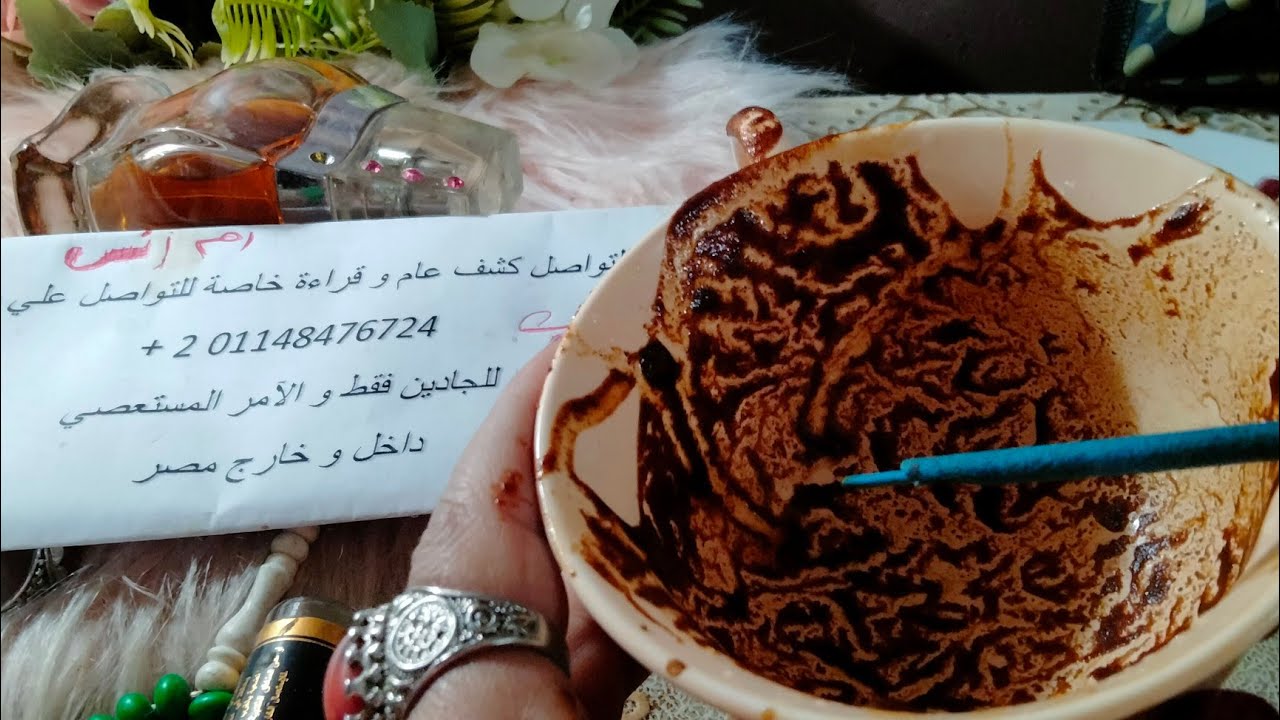 ام أنس
لتواصل كشف عام و قراءة خاصة للتواصل علي
+ 2 01148476724
للجادين فقط و الآمر المستعصي
داخل و خارج مصر